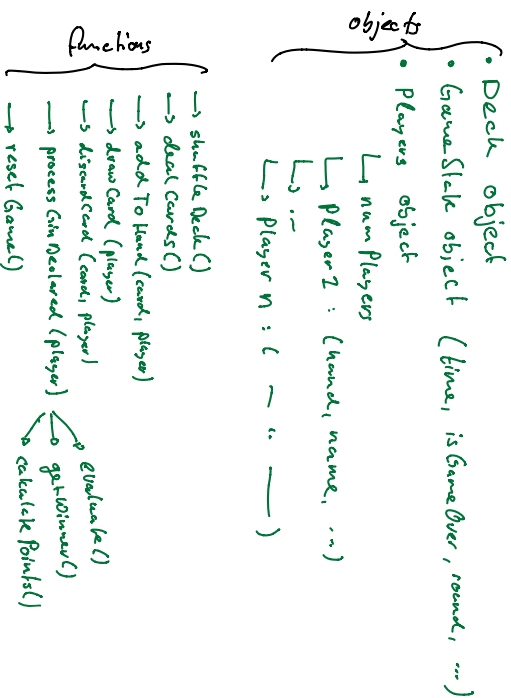 objects
• Deck object
• GameState object (time, isGameOver, round, ...)
• Players object
↳ numPlayers
↳ Player 1 : (hand, name, ...)
↳ ...
↳ Player n : ( — .. — )
functions
→ shuffleDeck()
→ dealCards()
→ addToHand(card, player)
→ drawCard (player)
→ discardCard (card, player)
→ processGinDeclared (player)
→ evaluate()
→ getWinner()
→ calculatePoints()
→ resetGame()